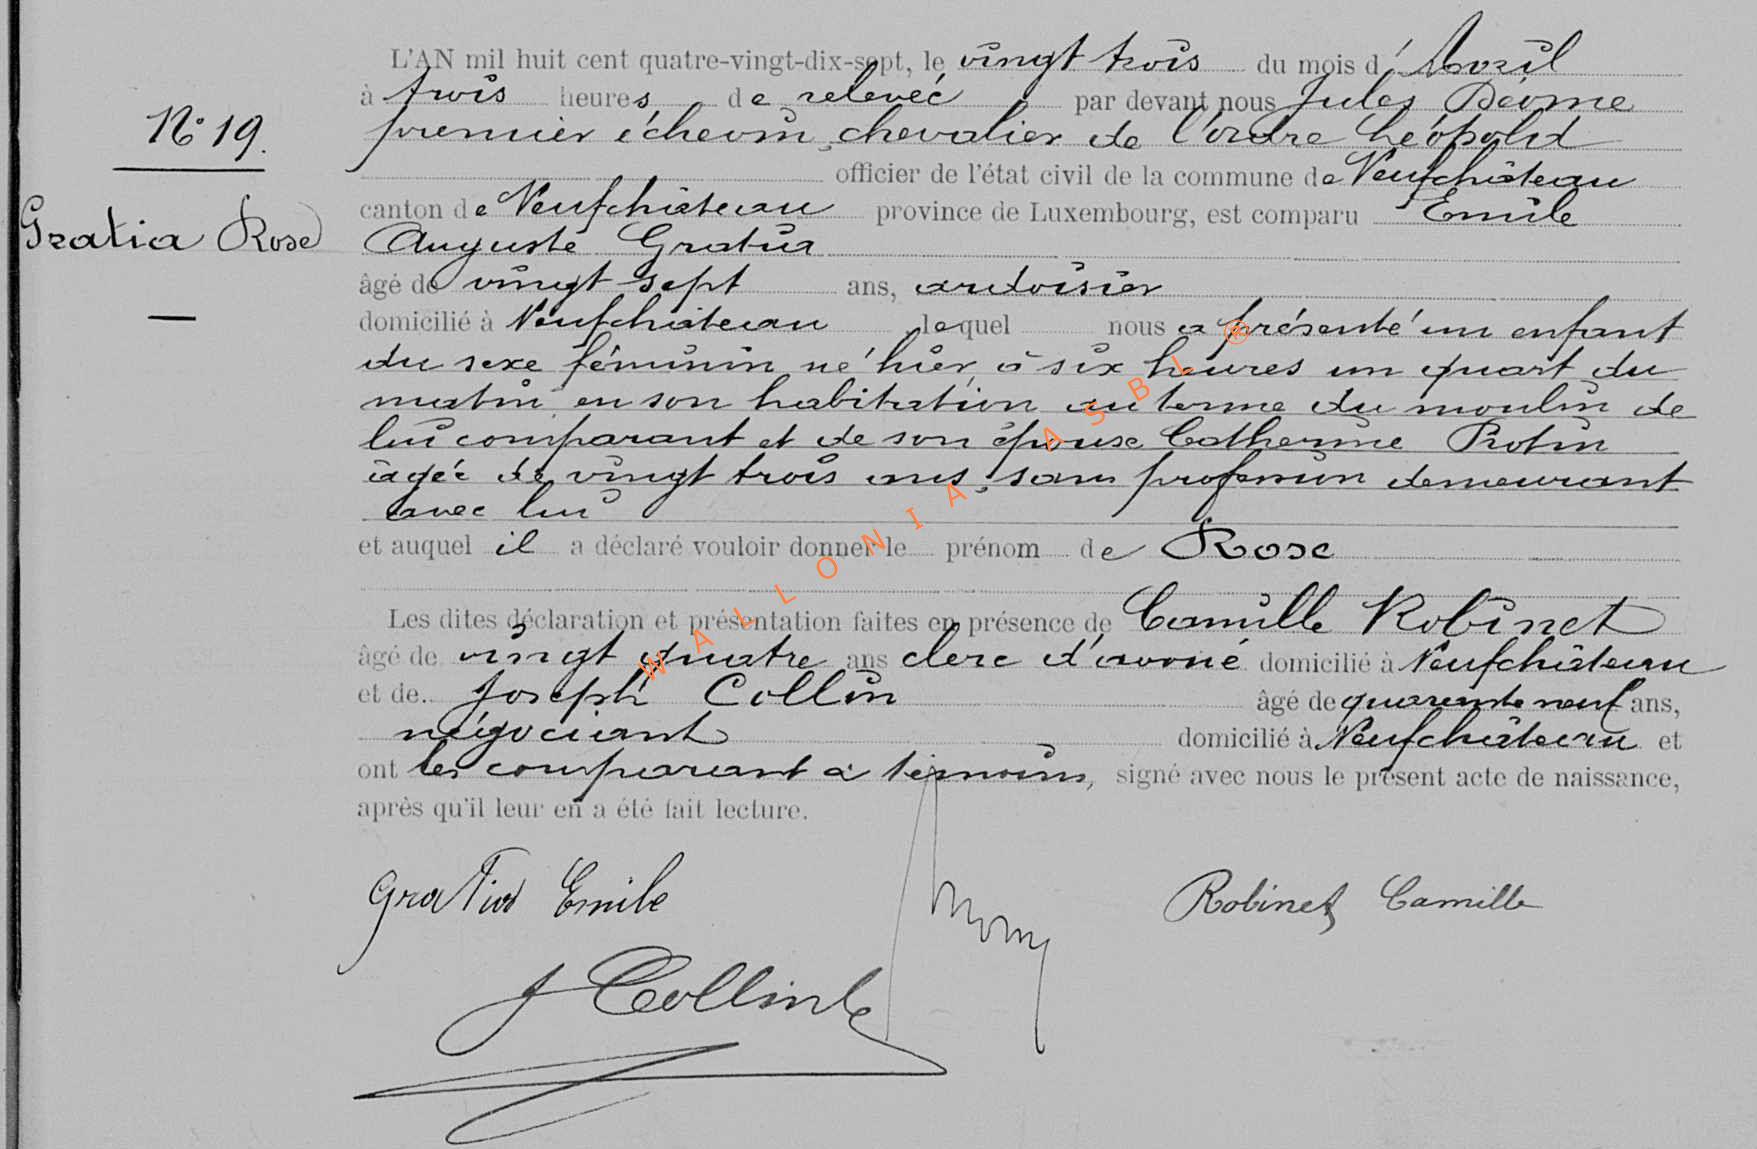 L'AN mil huit cent quatre-vingt-dix-sept, le vingt trois du mois d'Avril
à trois heures de relevée par devant nous Jules
N° 19.
premier échevin, chevalier de l'ordre Léopold
officier de l'état civil de la commune de Neufchâteau
canton de Neufchâteau province de Luxembourg, est comparu Emile
Gratia Rose
Auguste Gratia
âgé de vingt sept ans, ardoisier
domicilié à Neufchâteau lequel nous a présenté un enfant
du sexe féminin né hier, à six heures un quart du
matin, en son habitation au terme du moulin de
lui comparant et de son épouse Catherine
âgée de vingt trois ans, sans profession demeurant
avec lui
et auquel il a déclaré vouloir donner le prénom de Rose
Les dites déclaration et présentation faites en présence de Camille Robinet
âgé de vingt quatre ans clerc d'avoué domicilié à Neufchâteau
et de Joseph Collin âgé de quarante neuf ans,
négociant domicilié à Neufchâteau et
ont les comparant & témoins, signé avec nous le présent acte de naissance,
après qu'il leur en a été fait lecture.
Gratia Emile
Robinet Camille
J Collin
WALLONIA ASBL ®